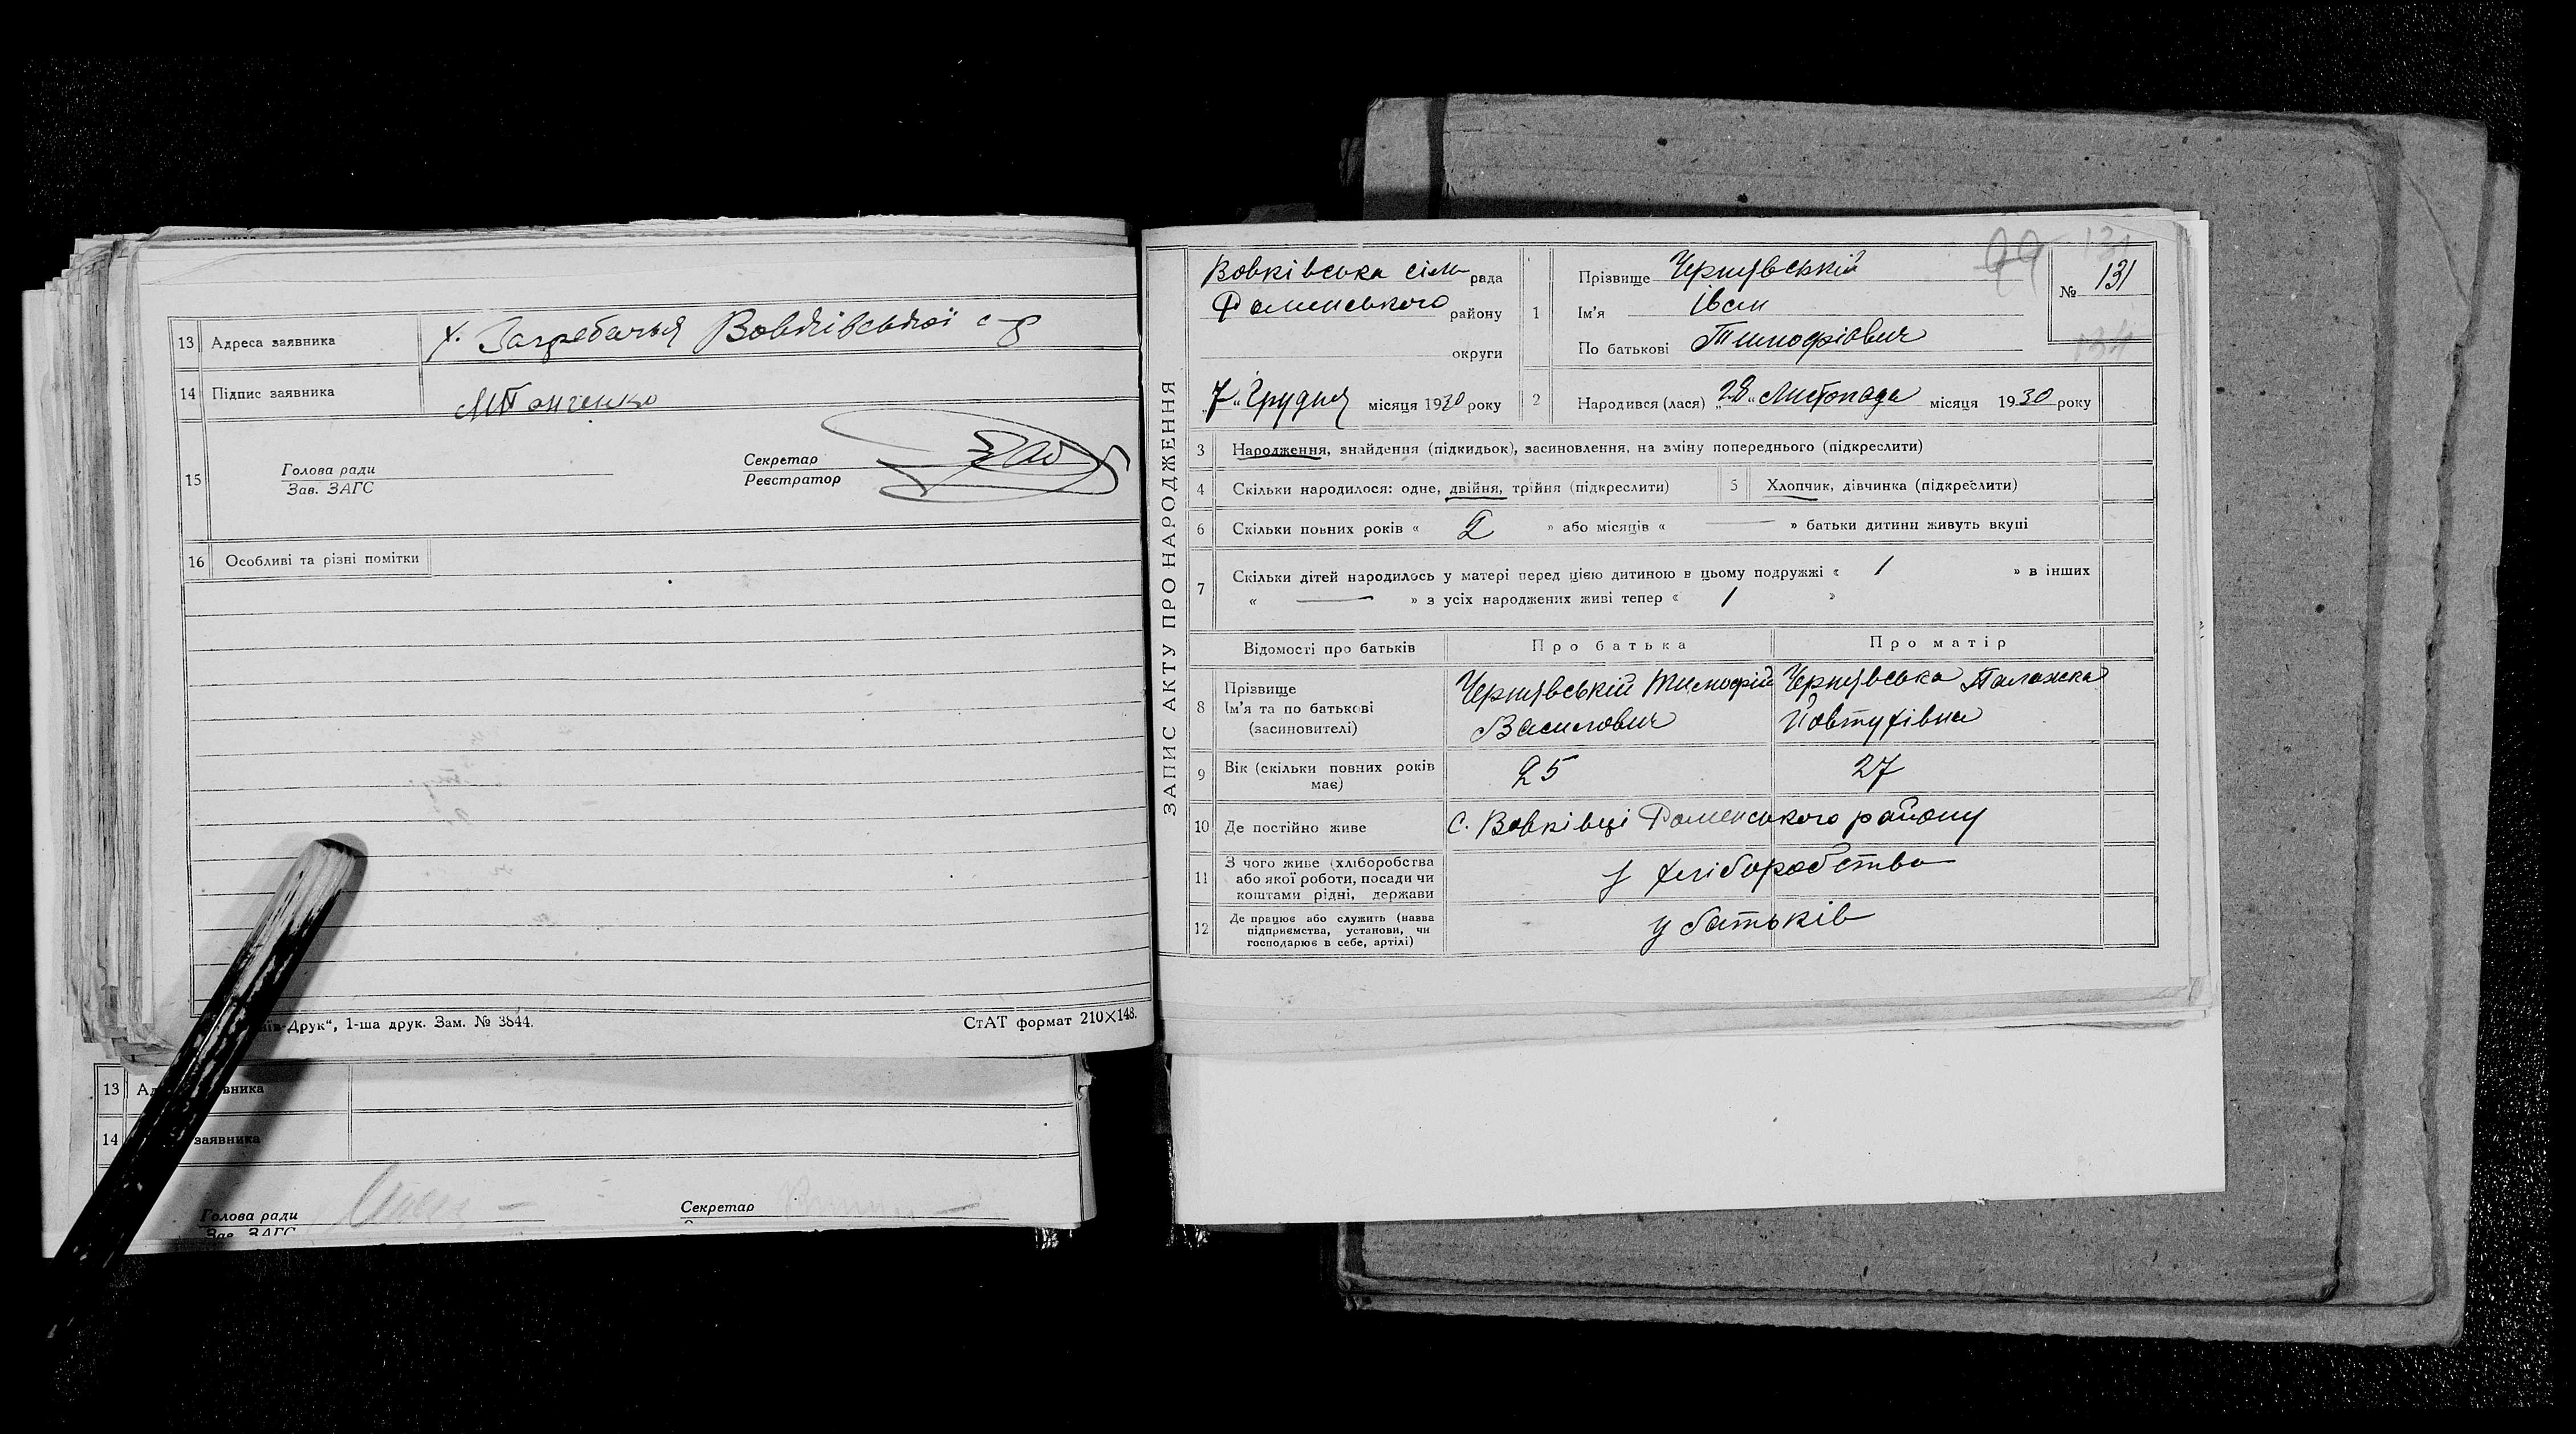 13 Адреса заявника х. Загребалья Вовківської с-р
14 Підпис заявника
15 Голова ради
Зав. ЗАГС
Секретар
Реєстратор
16 Особливі та різні помітки
-Друк“, 1-ша друк. Зам. № 3844.
СтАТ формат 210×148.
13
14 заявника
Голова ради
Зав. ЗАГС
Секретар
ЗАПИС АКТУ ПРО НАРОДЖЕННЯ
Вовківська сіль рада
Роменського району
округи
„7“ Грудня місяця 1930 року
1 Прізвище Чернявській
Ім'я Іван
По батькові Тимофіович
№ 131
2 Народився (лася) „28“ Листопада місяця 1930 року
3 Народження, знайдення (підкидьок), засиновлення, на зміну попереднього (підкреслити)
4 Скільки народилося: одне, двійня, трійня (підкреслити)
5 Хлопчик, дівчинка (підкреслити)
6 Скільки повних років « 2 » або місяців « — » батьки дитини живуть вкупі
7 Скільки дітей народилось у матері перед цією дитиною в цьому подружжі « 1 » в інших
« — » з усіх народжених живі тепер « 1 »
Відомості про батьків Про батька Про матір
8 Прізвище
Ім'я та по батькові
(засиновителі)
Чернявській Тимофій
Василович
Чернявська Палажка
Йовтухівна
9 Вік (скільки повних років
має)
25 27
10 Де постійно живе с. Вовківці Роменського району
11 З чого живе (хліборобства
або якої роботи, посади чи
коштами рідні, держави
з хліборобства
12 Де працює або служить (назва
підприємства, установи, чи
господарює в себе, артілі)
у батьків